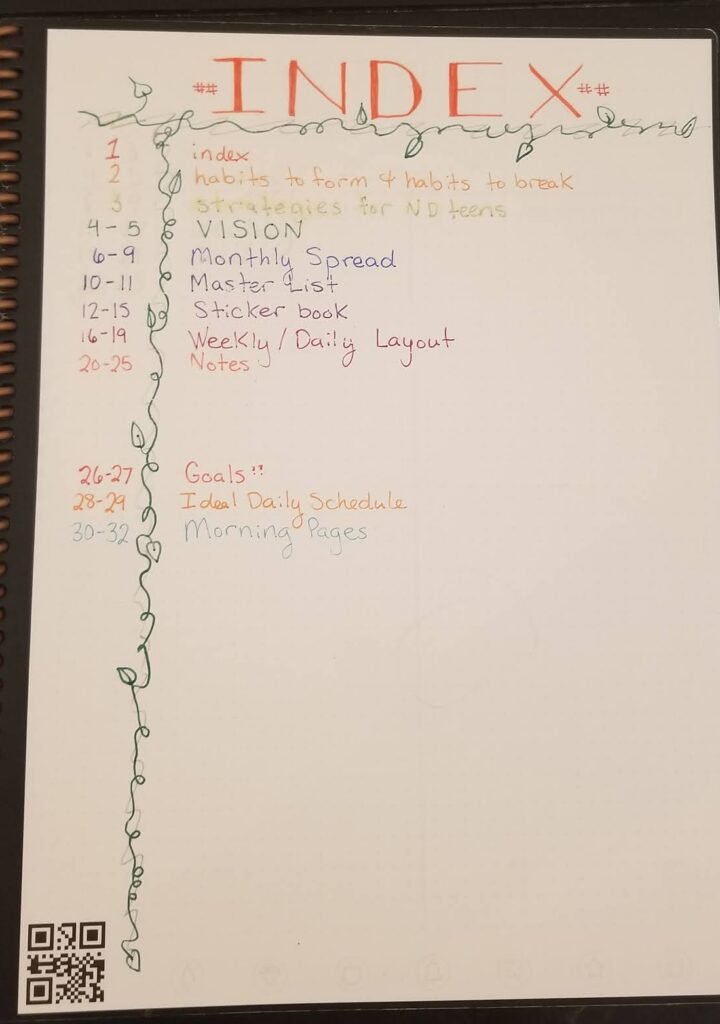 ## INDEX ##
1 index
2 habits to form & habits to break
3 strategies for ND teens
4-5 VISION
6-9 Monthly Spread
10-11 Master List
12-15 Sticker book
16-19 Weekly / Daily Layout
20-25 Notes
26-27 Goals!!
28-29 Ideal Daily Schedule
30-32 Morning Pages